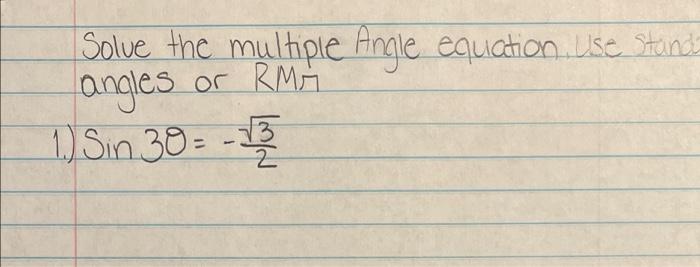 Solve the multiple Angle equation. Use Stand
angles or
1.) Sin 3θ = -√3/2